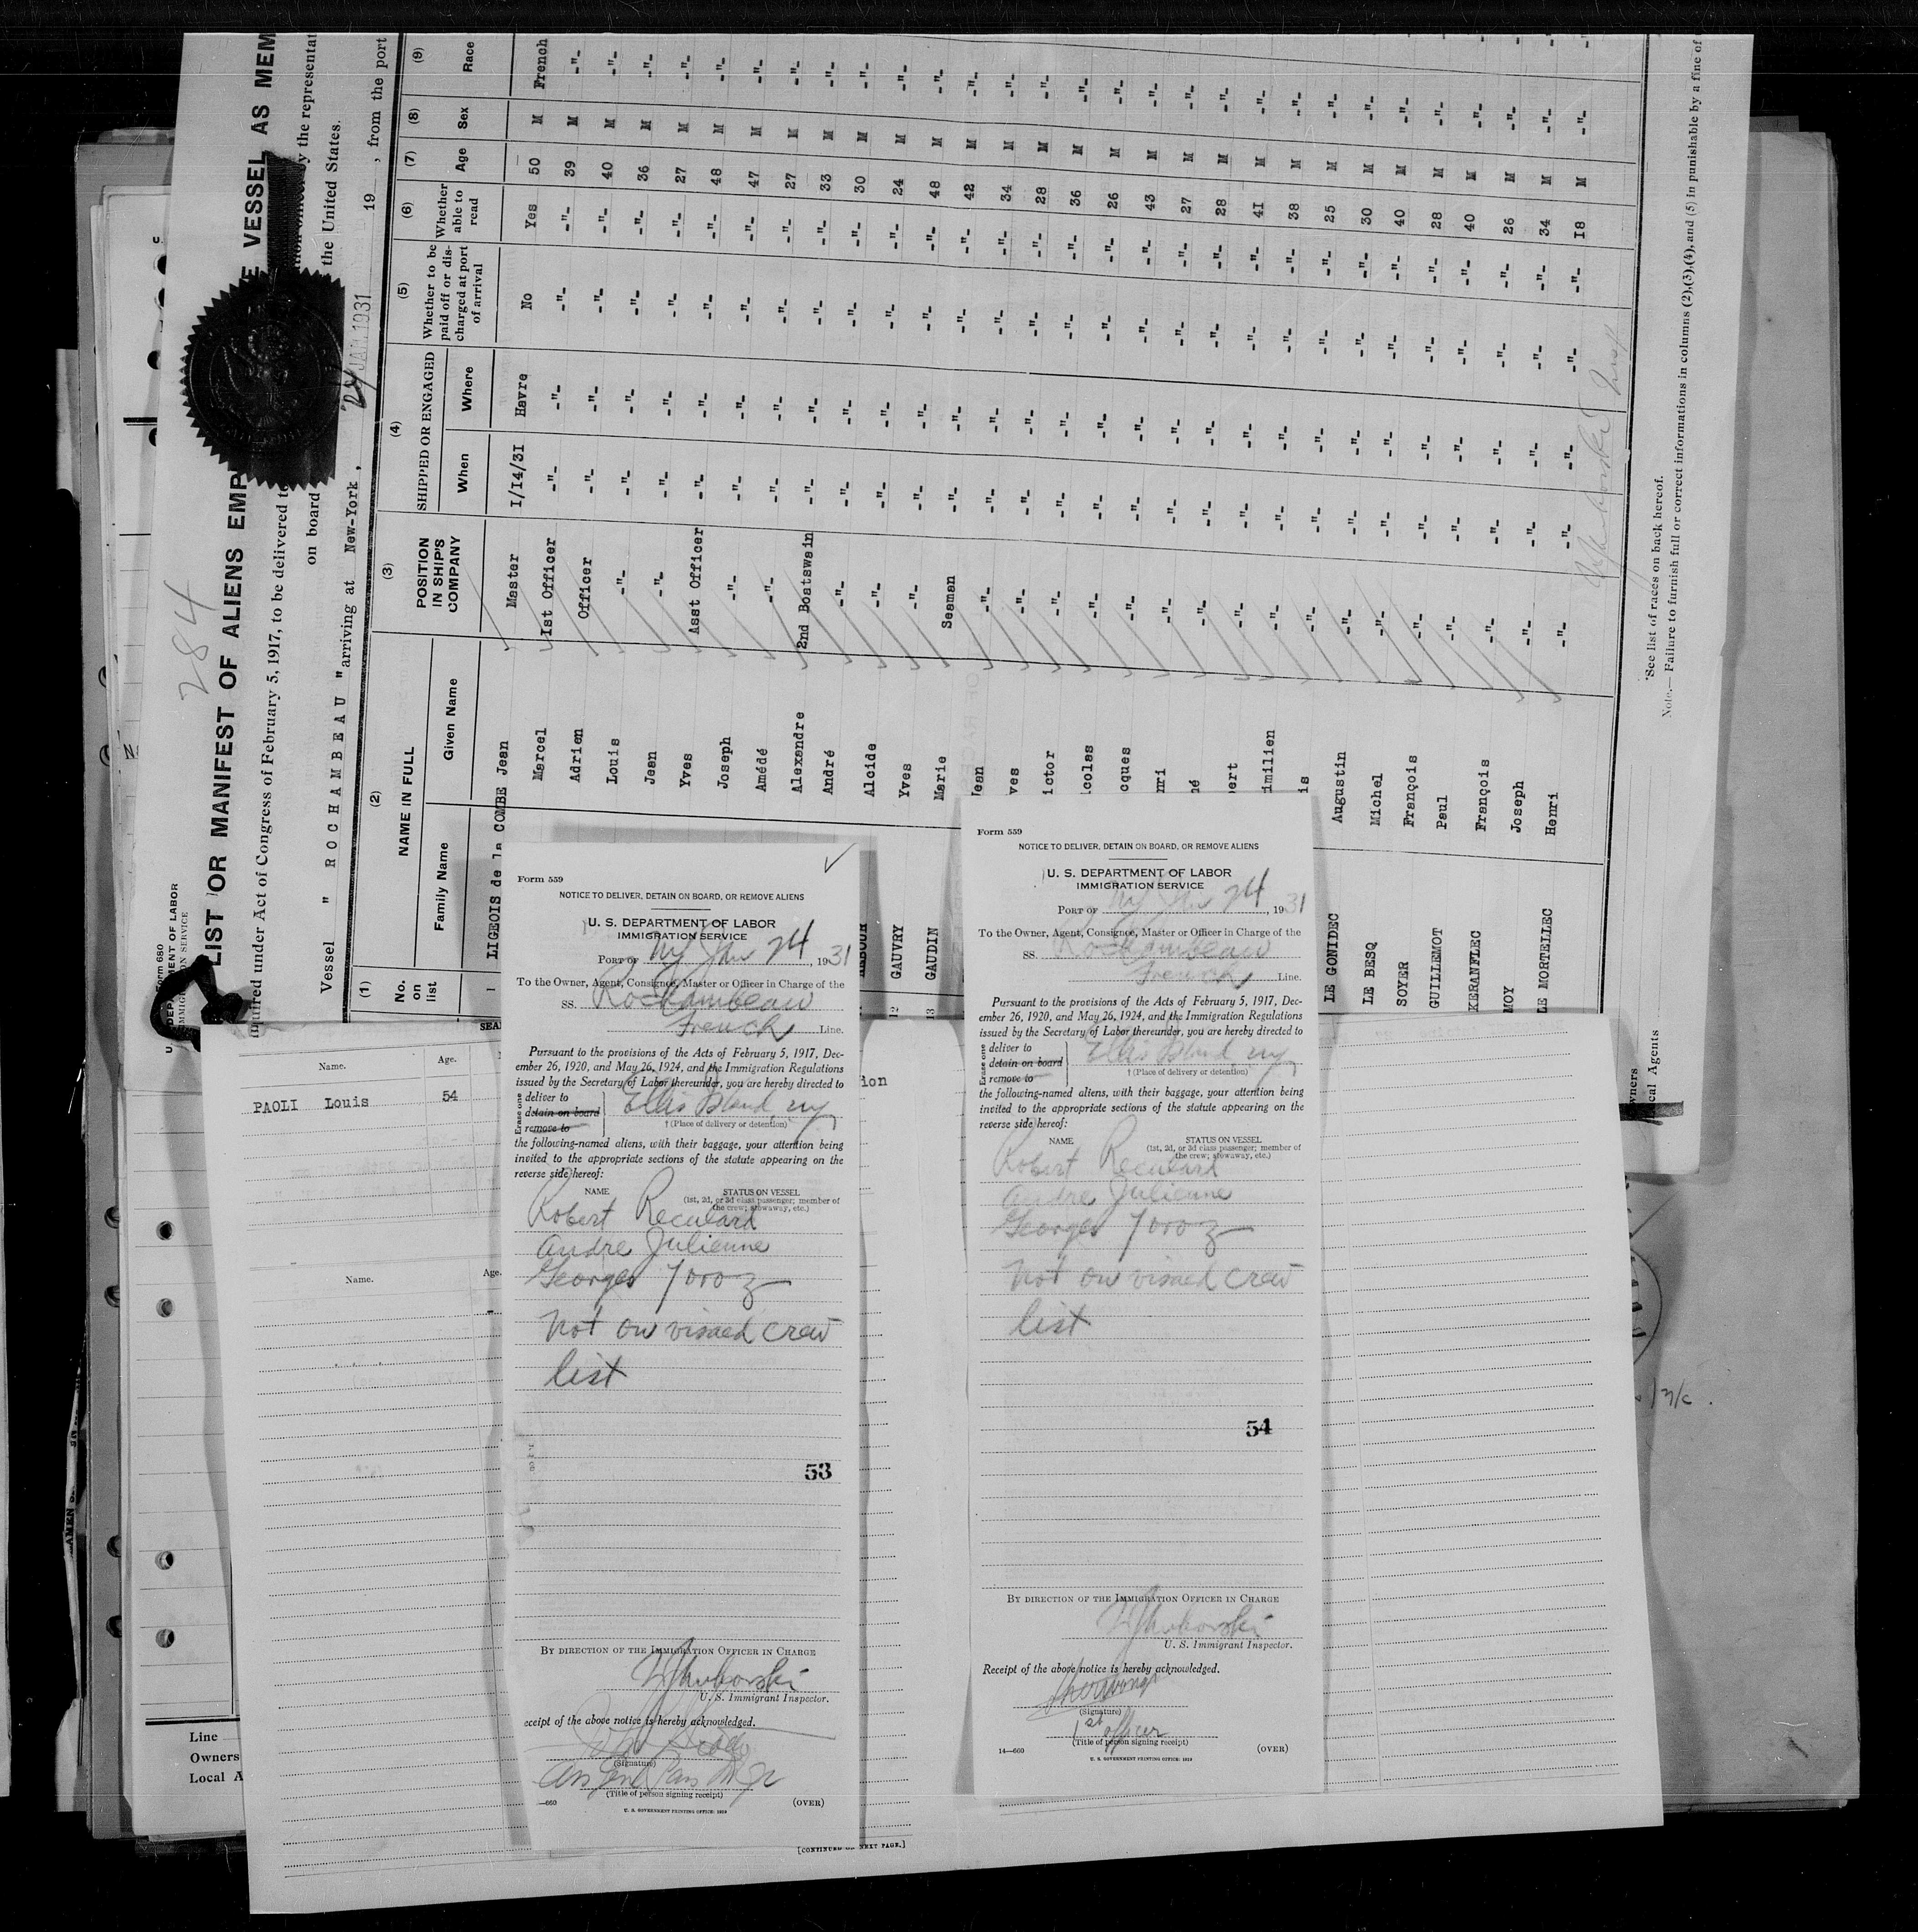 284
Form 680
U. S. DEPARTMENT OF LABOR
IMMIGRATION SERVICE
LIST OR MANIFEST OF ALIENS EMP
E VESSEL AS MEM
under Act of Congress of February 5, 1917, to be delivered to
by the representat
on board
the United States.
Vessel " ROCHAMBEAU " arriving at New-York, 24 JAN. 1931 19 , from the port
(1) (2) (3) (4) (5) (6) (7) (8) (9)
No. on list
NAME IN FULL
Family Name Given Name
POSITION IN SHIP'S COMPANY
SHIPPED OR ENGAGED
When Where
Whether to be paid off or discharged at port of arrival
Whether able to read
Age
Sex
Race
1 LIGEOIS de la COMBE Jean Master 1/14/31 Havre No Yes 50 M French
Marcel 1st Officer -"- -"- -"- -"- 39 M -"-
Adrien Officer -"- -"- -"- -"- 40 M -"-
Louis -"- -"- -"- -"- -"- 36 M -"-
Jean -"- -"- -"- -"- -"- 27 M -"-
Yves Asst Officer -"- -"- -"- -"- 48 M -"-
Joseph -"- -"- -"- -"- -"- 47 M -"-
Amédé -"- -"- -"- -"- -"- 27 M -"-
Alexandre 2nd Boatswain -"- -"- -"- -"- 33 M -"-
André -"- -"- -"- -"- -"- 30 M -"-
Alcide -"- -"- -"- -"- -"- 24 M -"-
12 GAUVRY Yves -"- -"- -"- -"- -"- 48 M -"-
13 GAUDIN Marie Seaman -"- -"- -"- -"- 42 M -"-
Jean -"- -"- -"- -"- -"- 34 M -"-
ves -"- -"- -"- -"- -"- 28 M -"-
ictor -"- -"- -"- -"- -"- 36 M -"-
icolas -"- -"- -"- -"- -"- 26 M -"-
cques -"- -"- -"- -"- -"- 43 M -"-
nri -"- -"- -"- -"- -"- 27 M -"-
né -"- -"- -"- -"- -"- 28 M -"-
bert -"- -"- -"- -"- -"- 41 M -"-
imilien -"- -"- -"- -"- -"- 38 M -"-
is -"- -"- -"- -"- -"- 25 M -"-
LE GONIDEC Augustin -"- -"- -"- -"- -"- 30 M -"-
LE BESQ Michel -"- -"- -"- -"- -"- 40 M -"-
SOYER François -"- -"- -"- -"- -"- 28 M -"-
GUILLEMOT Paul -"- -"- -"- -"- -"- 40 M -"-
KERANFLEC François -"- -"- -"- -"- -"- 26 M -"-
MOY Joseph -"- -"- -"- -"- -"- 34 M -"-
LE MORTELLEC Henri -"- -"- -"- -"- -"- 18 M -"-
*See list of races on back hereof.
Note.— Failure to furnish full or correct informations in columns (2),(3),(4), and (5) in punishable by a fine of
wners
cal Agents
Name. Age.
PAOLI Louis 54
Name. Age.
Line
Owners
Local A
[CONTINUED ON NEXT PAGE.]
Form 559
NOTICE TO DELIVER, DETAIN ON BOARD, OR REMOVE ALIENS
U. S. DEPARTMENT OF LABOR
IMMIGRATION SERVICE
Port of NY Jan 24, 1931
To the Owner, Agent, Consignee, Master or Officer in Charge of the
SS. Rochambeau
French Line.
Pursuant to the provisions of the Acts of February 5, 1917, Dec-
ember 26, 1920, and May 26, 1924, and the Immigration Regulations
issued by the Secretary of Labor thereunder, you are hereby directed to
Erase one
deliver to
detain on board
remove to
Ellis Island, NY
† (Place of delivery or detention)
the following-named aliens, with their baggage, your attention being
invited to the appropriate sections of the statute appearing on the
reverse side hereof:
NAME STATUS ON VESSEL
(1st, 2d, or 3d class passenger; member of
the crew; stowaway, etc.)
Robert Reculard
Andre Julienne
Georges
Not on visaed crew
list
53
By direction of the Immigration Officer in Charge
U. S. Immigrant Inspector.
eceipt of the above notice is hereby acknowledged.
(Signature)
(Title of person signing receipt)
—660
(OVER)
U. S. GOVERNMENT PRINTING OFFICE: 1929
Form 559
NOTICE TO DELIVER, DETAIN ON BOARD, OR REMOVE ALIENS
U. S. DEPARTMENT OF LABOR
IMMIGRATION SERVICE
Port of NY Jan 24, 1931
To the Owner, Agent, Consignee, Master or Officer in Charge of the
SS. Rochambeau
French Line.
Pursuant to the provisions of the Acts of February 5, 1917, Dec-
ember 26, 1920, and May 26, 1924, and the Immigration Regulations
issued by the Secretary of Labor thereunder, you are hereby directed to
Erase one
deliver to
detain on board
remove to
Ellis Island, NY
† (Place of delivery or detention)
the following-named aliens, with their baggage, your attention being
invited to the appropriate sections of the statute appearing on the
reverse side hereof:
NAME STATUS ON VESSEL
(1st, 2d, or 3d class passenger; member of
the crew; stowaway, etc.)
Robert Reculard
Andre Julienne
Georges
Not on visaed crew
list
54
By direction of the Immigration Officer in Charge
U. S. Immigrant Inspector.
Receipt of the above notice is hereby acknowledged.
(Signature)
1st officer
(Title of person signing receipt)
14—660
(OVER)
U. S. GOVERNMENT PRINTING OFFICE: 1929